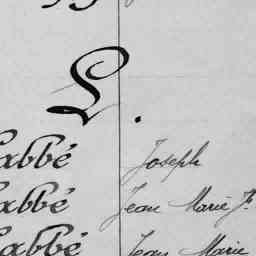 L.
Labbé Joseph
Labbé Jean Marie Fs
Labbé Jean Marie